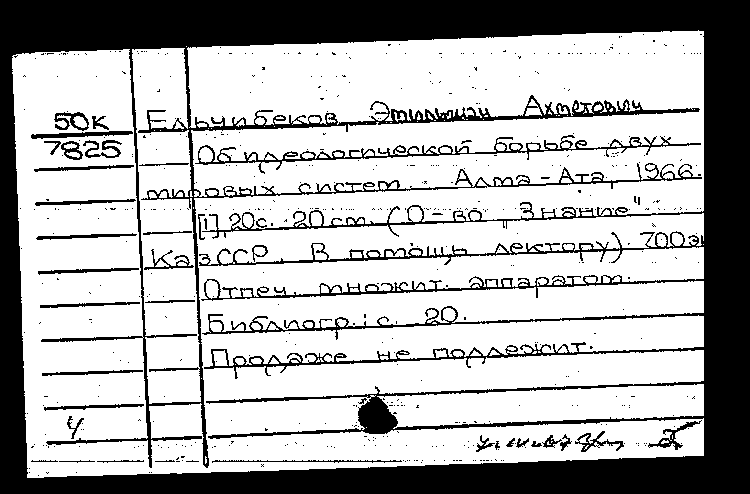 50К Ельчибеков, Ахметович
7825 Об идеологической борьбе двух
мировых систем. Алма-Ата, 1966.
[1], 20с. 20 см. (О-во „Знание"
КазССР. В помощь лектору). 700э
Отпеч. множит. аппаратом.
Библиогр.: с. 20.
Продаже не подлежит.